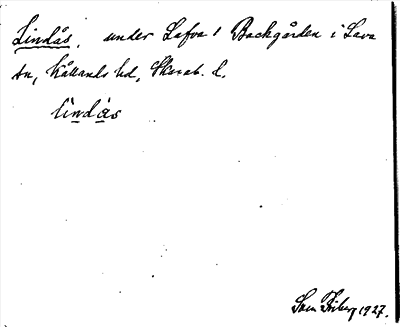 Lindås, under Lafva 1 Backgården i Lava
sn, Kållands hd, Skarab. l.
lìndås
Sven Friberg 1927.